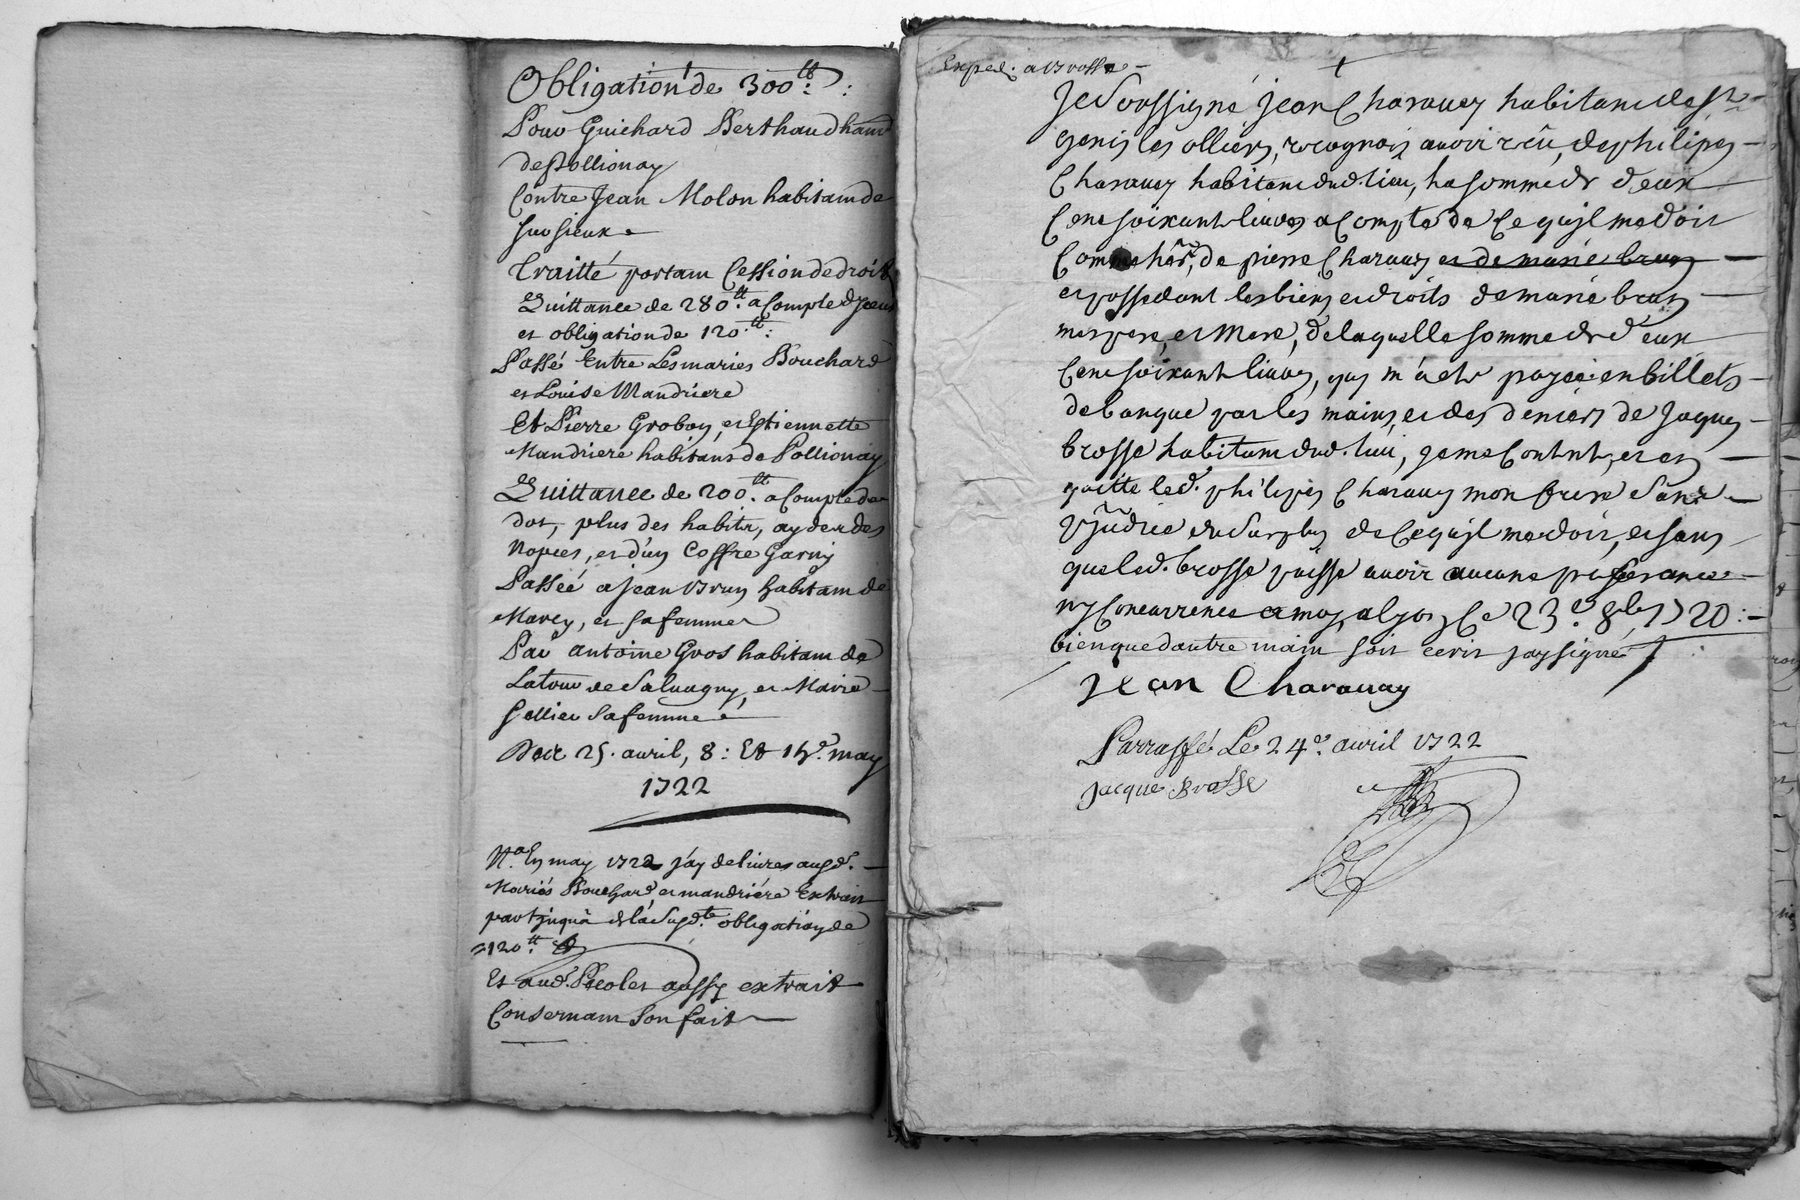 Obligation de 300.tt :
Pour Guichard Berthaud hant
de Pollionay
Contre Jean Molon habitam de
Sursieux
Traitté portam Cession de droits
Quittance de 280.tt a Compte
et obligation de 120.tt :
Passé Entre Les mariés Bouchard
et Louise Mandriere
Et Pierre Grobon, et Estiennette
Mandriere habitans de Pollionay
Quittance de 200.tt a Compte de
dot, plus des habits, ayder des
Nopces, et d'un Coffre Garny
Passée a Jean Brun habitam de
Marcy, et sa femme
Par antoine Gros habitam de
Latour de Salvagny, et Marie
Sa femme
Du 25. avril, 8: Et 15.e may
1722
N.a En may 1722 j'ay delivré ausd.
Mariés Bouchard, et mandriére Extrait
partjnqua de la susd.te obligation de
120.tt
Et aud. aussy extrait
Consernam son fait
Exped. a Brosse
Je Soussigné Jean Charauay habitam de St
genis les ollieres, recognois avoir reçû, de philipes
Charauay habitam dud. lieu, la somme de deux
Cent soixante livres a Compte de Ce qu'jl me doit
Comme hér, de pierre Charauay et de marie brun
et possedant les biens et droits de marie brun
mes pere, et Mere, de laquelle somme de deux
Cent soixante livres, qui m'a été payée en billets
de banque par les mains, et des deniers de Jaques
brosse habitam dud. lieu, je me Contente, et en
quitte led. philipes Charauay mon frere Sans
pjudice du Surplus de Ce qu'jl me doit, et sans
que led. brosse puisse avoir aucune preferance
ny Concurrence a moy, a lyon Ce 23.e 8bre 1720 :
bien que d'autre main soit écrit j'ay signé
Jean Charauay
Parraffé Le 24.e avril 1722
Jacque Brosse